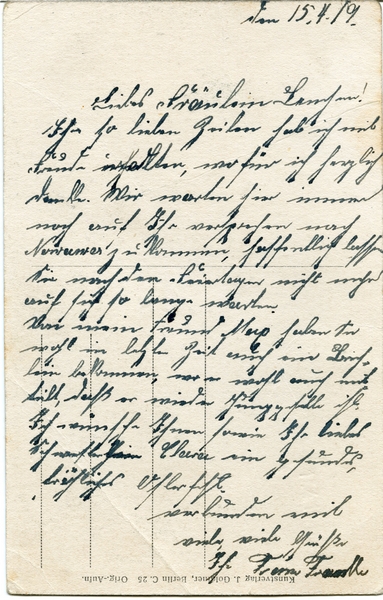 den 15.4.19.
Liebes Fräulein Lenchen!
Ihr so lieben Zeilen hab ich mit
Freude erhalten, wofür ich herzlich
danke. Wir warten hier immer
noch auf Ihr versprechen nach
Nowawes zu kommen, hoffentlich lassen
Sie nach den Feiertagen nicht mehr
auf sich so lange warten
Von mein Freund Max haben Sie
wohl in letzte Zeit auch ein Brief-
lein bekommen, wo er wohl auch mit
teilt, daß er wieder Junggeselle ist.
Ich wünsche Ihnen sowie Ihr liebes
Schwesterlein Clara ein gesundes
fröhliches Osterfest
verbunden mit
viele viele Grüße
Ihr
Kunstverlag J. Goldiner, Berlin C. 25 Orig.-Aufn.